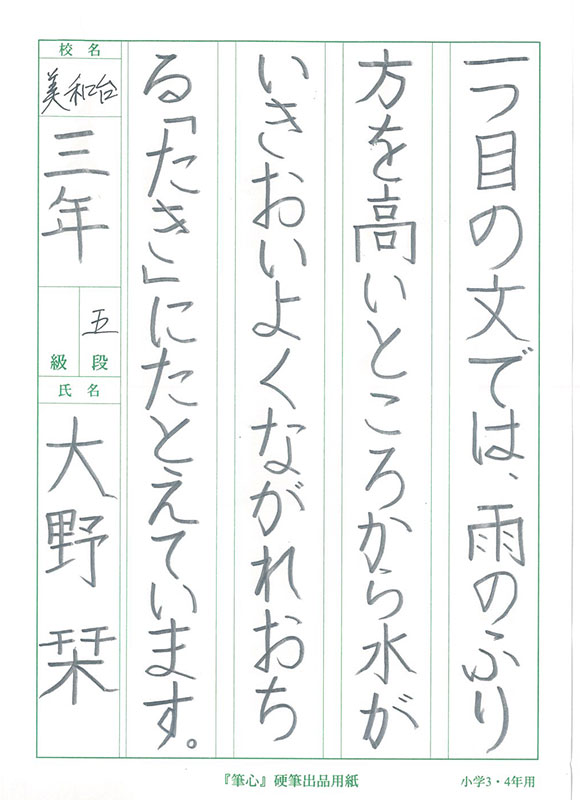 一つ目の文では、雨のふり
方を高いところから水が
いきおいよくながれおち
る「たき」にたとえています。
校名
美和台
三年
五
段
級
氏名
大野栞
『筆心』硬筆出品用紙
小学3・4年用